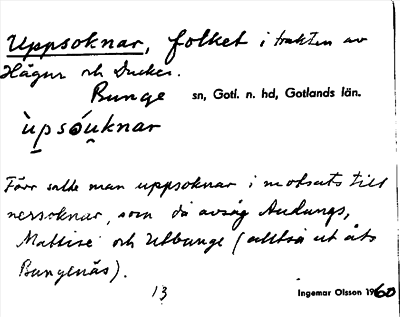 Uppsoknar, folket i trakten av
Hägur och Duckes.
Bunge sn, Gotl. n. hd, Gotlands län.
ùpsóuknar
Förr sade man uppsoknar i motsats till
nersoknar, som då avsåg Audungs,
Mattise och Utbunge (alltså ut åt
Bungenäs).
13 Ingemar Olsson 1960